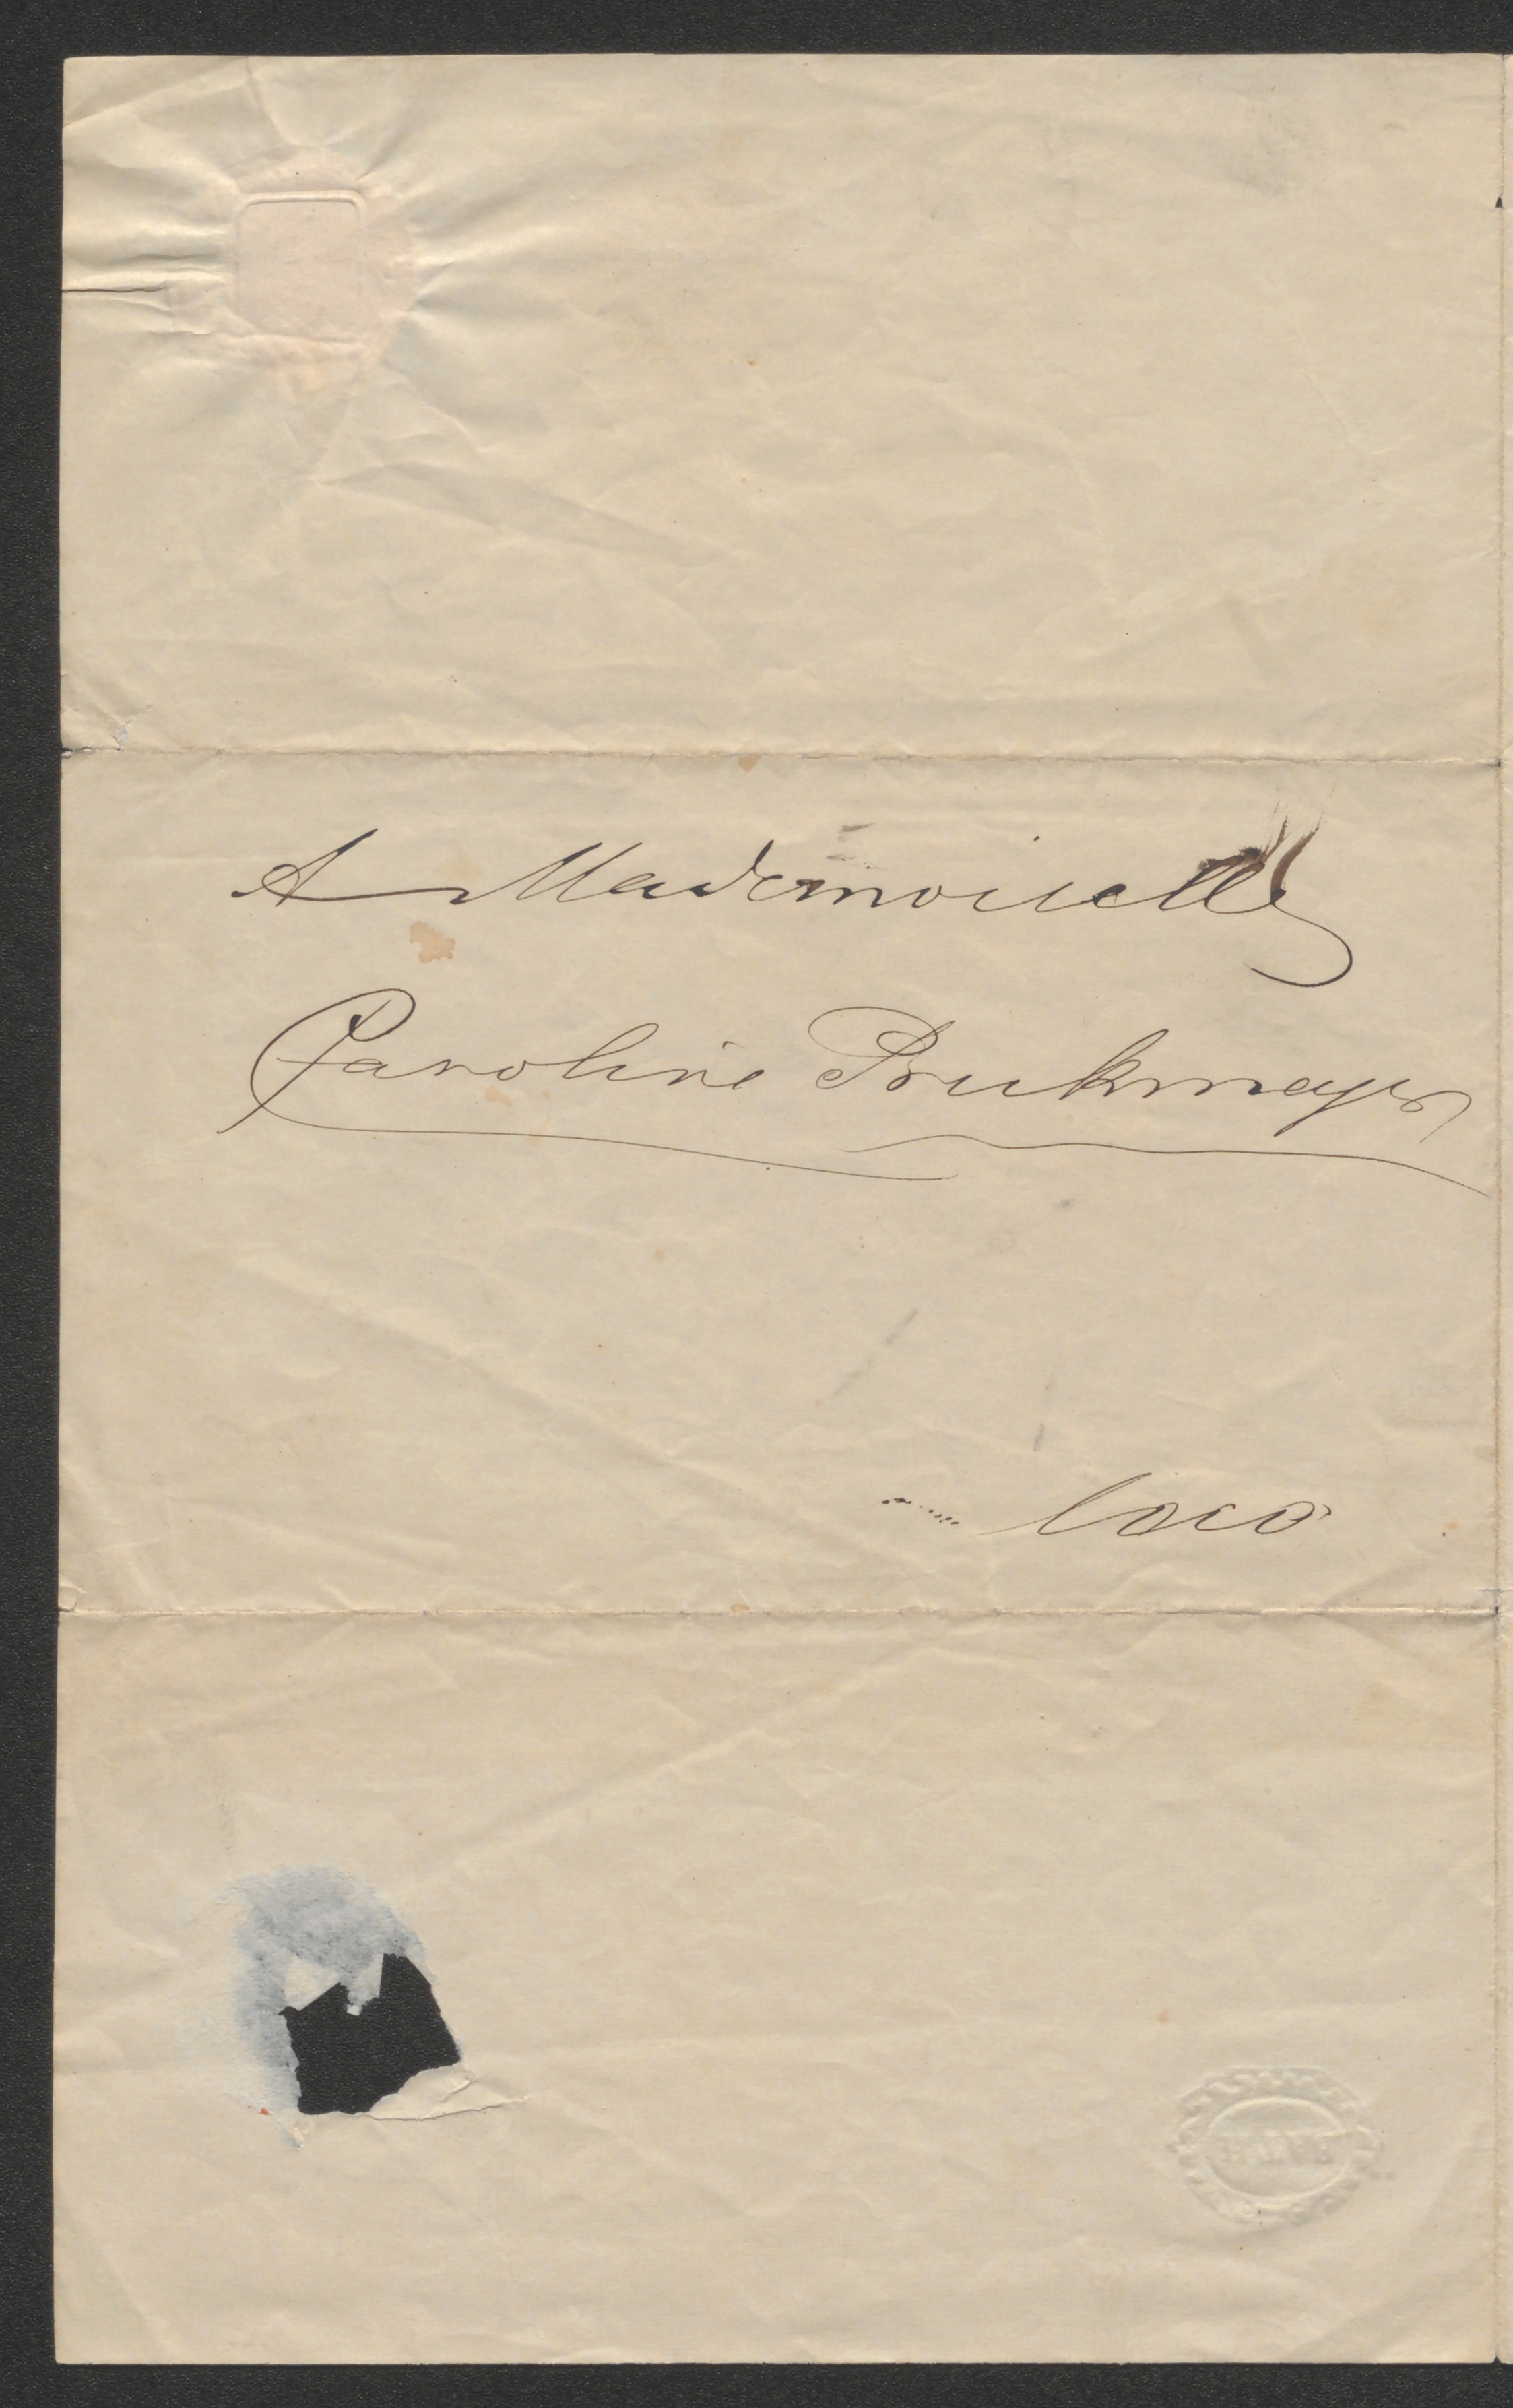 A Mademoiselle
Caroline Brukmeyer
loco